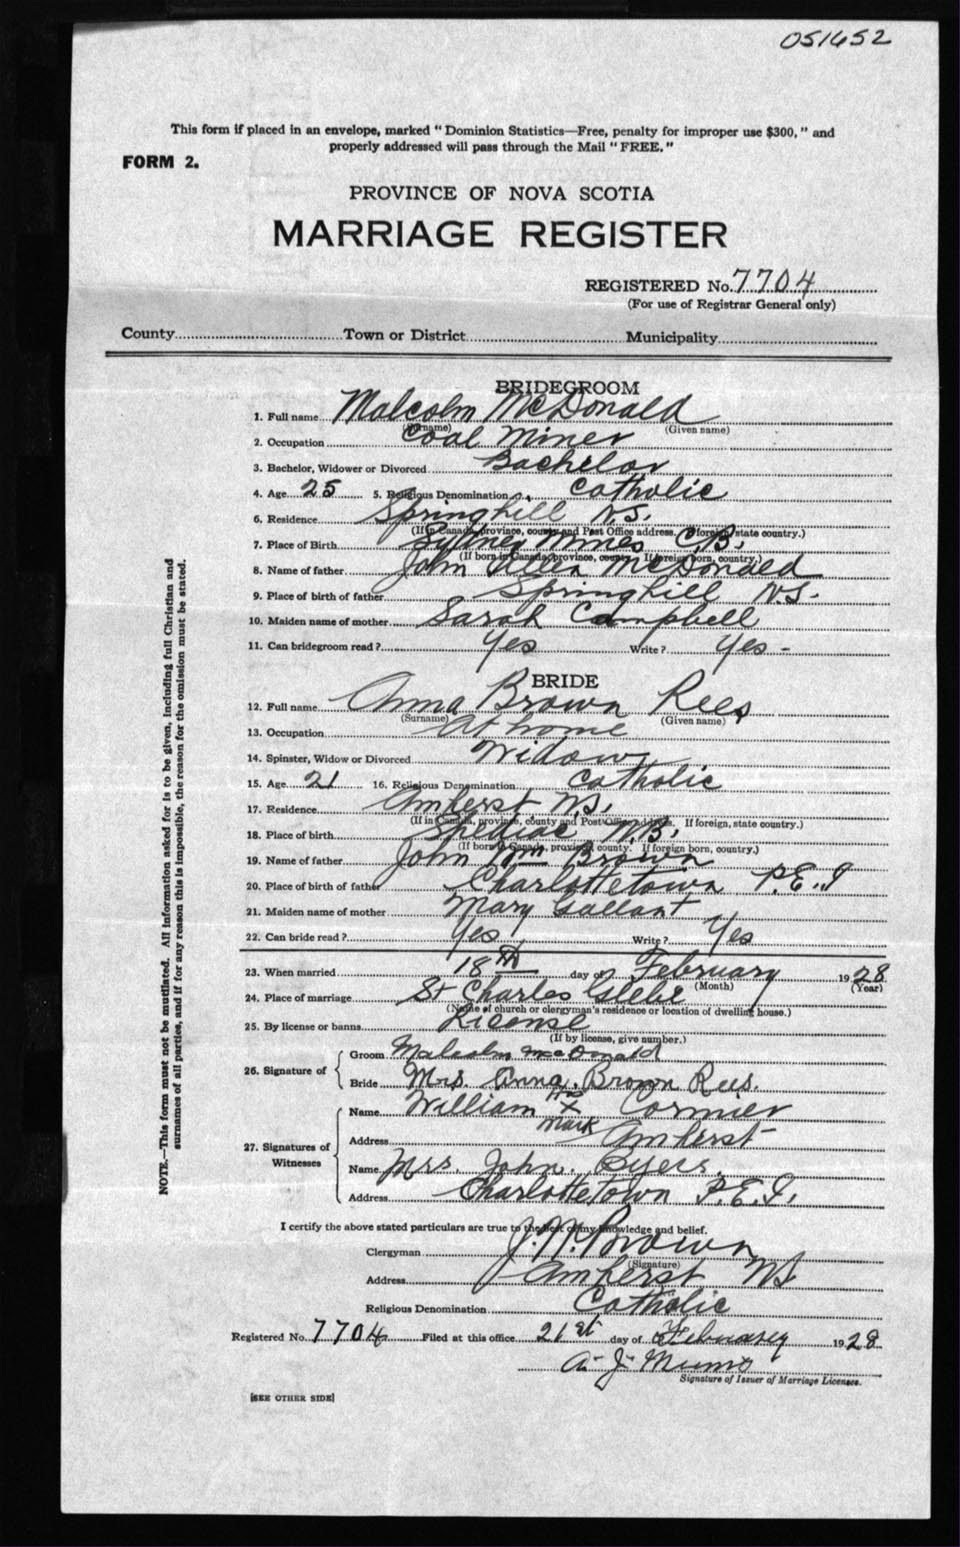 051652
This form if placed in an envelope, marked "Dominion Statistics—Free, penalty for improper use $300," and
properly addressed will pass through the Mail "FREE."
FORM 2.
PROVINCE OF NOVA SCOTIA
MARRIAGE REGISTER
REGISTERED No. 7704
(For use of Registrar General only)
County Town or District Municipality
BRIDEGROOM
1. Full name Malcolm McDonald
(Surname) (Given name)
2. Occupation Coal Miner
3. Bachelor, Widower or Divorced Bachelor
4. Age 25 5. Religious Denomination Catholic
6. Residence Springhill N.S.
(If in Canada, province, county and Post Office address. If foreign, state country.)
7. Place of Birth Sydney Mines C.B.
(If born in Canada, province, county. If foreign born, country.)
8. Name of father John Allen McDonald
9. Place of birth of father Springhill N.S.
10. Maiden name of mother Sarah Campbell
11. Can bridegroom read? Yes Write? Yes -
BRIDE
12. Full name Anna Brown Rees
(Surname) (Given name)
13. Occupation At home
14. Spinster, Widow or Divorced Widow
15. Age 21 16. Religious Denomination Catholic
17. Residence Amherst N.S.
(If in Canada, province, county and Post Office address. If foreign, state country.)
18. Place of birth Shediac N.B.
(If born in Canada, province, county. If foreign born, country.)
19. Name of father John Wm Brown
20. Place of birth of father Charlottetown P.E.I
21. Maiden name of mother Mary Gallant
22. Can bride read? Yes Write? Yes
23. When married 18th day of February 1928
(Month) (Year)
24. Place of marriage St Charles Glebe
(Name of church or clergyman's residence or location of dwelling house.)
25. By license or banns License
(If by license, give number.)
26. Signature of Groom Malcolm McDonald
Bride Mrs. Anna. Brown Rees.
27. Signatures of Witnesses
Name William His X Mark Cormier
Address Amherst
Name Mrs. John. Byers.
Address Charlottetown P.E.I.
I certify the above stated particulars are true to the best of my knowledge and belief.
Clergyman J.W. Brown
(Signature)
Address Amherst NS
Religious Denomination Catholic
Registered No. 7704 Filed at this office 21st day of February 1928
A. J. Munro
Signature of Issuer of Marriage Licenses.
[SEE OTHER SIDE]
NOTE.—This form must not be mutilated. All information asked for is to be given, including full Christian and
surnames of all parties, and if for any reason this is impossible, the reason for the omission must be stated.